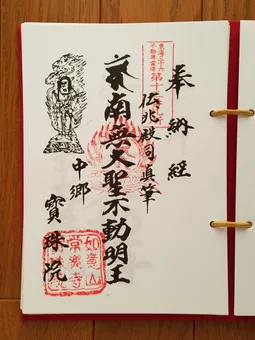 奉納経
東海三十六
不動尊霊場
第十
伝兆殿司真筆
南無大聖不動明王
中郷
寳珠院
如意山
常樂寺